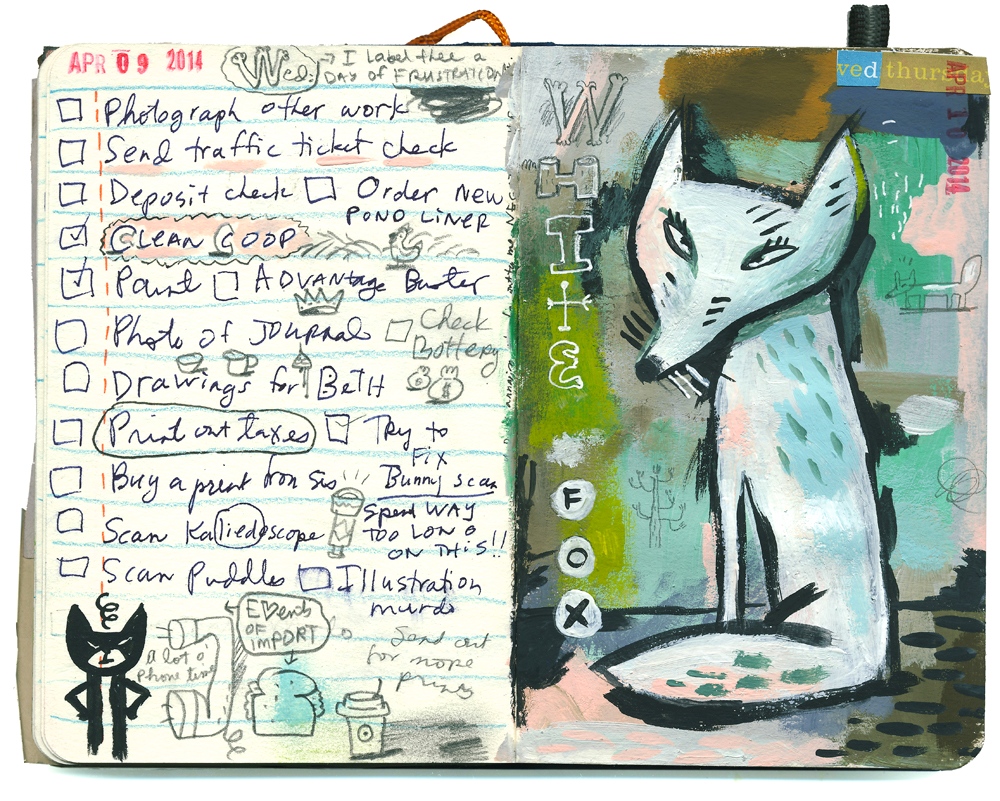 APR 09 2014
Wed.
I label thee a
DAY OF FRUSTRATION
Photograph other work
Send traffic ticket check
Deposit check
Order New
POND LINER
CLEAN COOP
Paint
ADVANTAGE Buster
Photo of JOURNAL
Check
Battery
Drawings for BETH
Print out taxes
Try to
Fix
Bunny scan
Buy a print from Sis
Spend WAY
TOO LONG
ON THIS!!
Scan Kaliedoscope
Scan Puddles
Illustration
murdo
EVents
OF IMPORT
a lot o'
Phone time
Send out
for more
ved thursda
APR 10 2014
WHITE
FOX